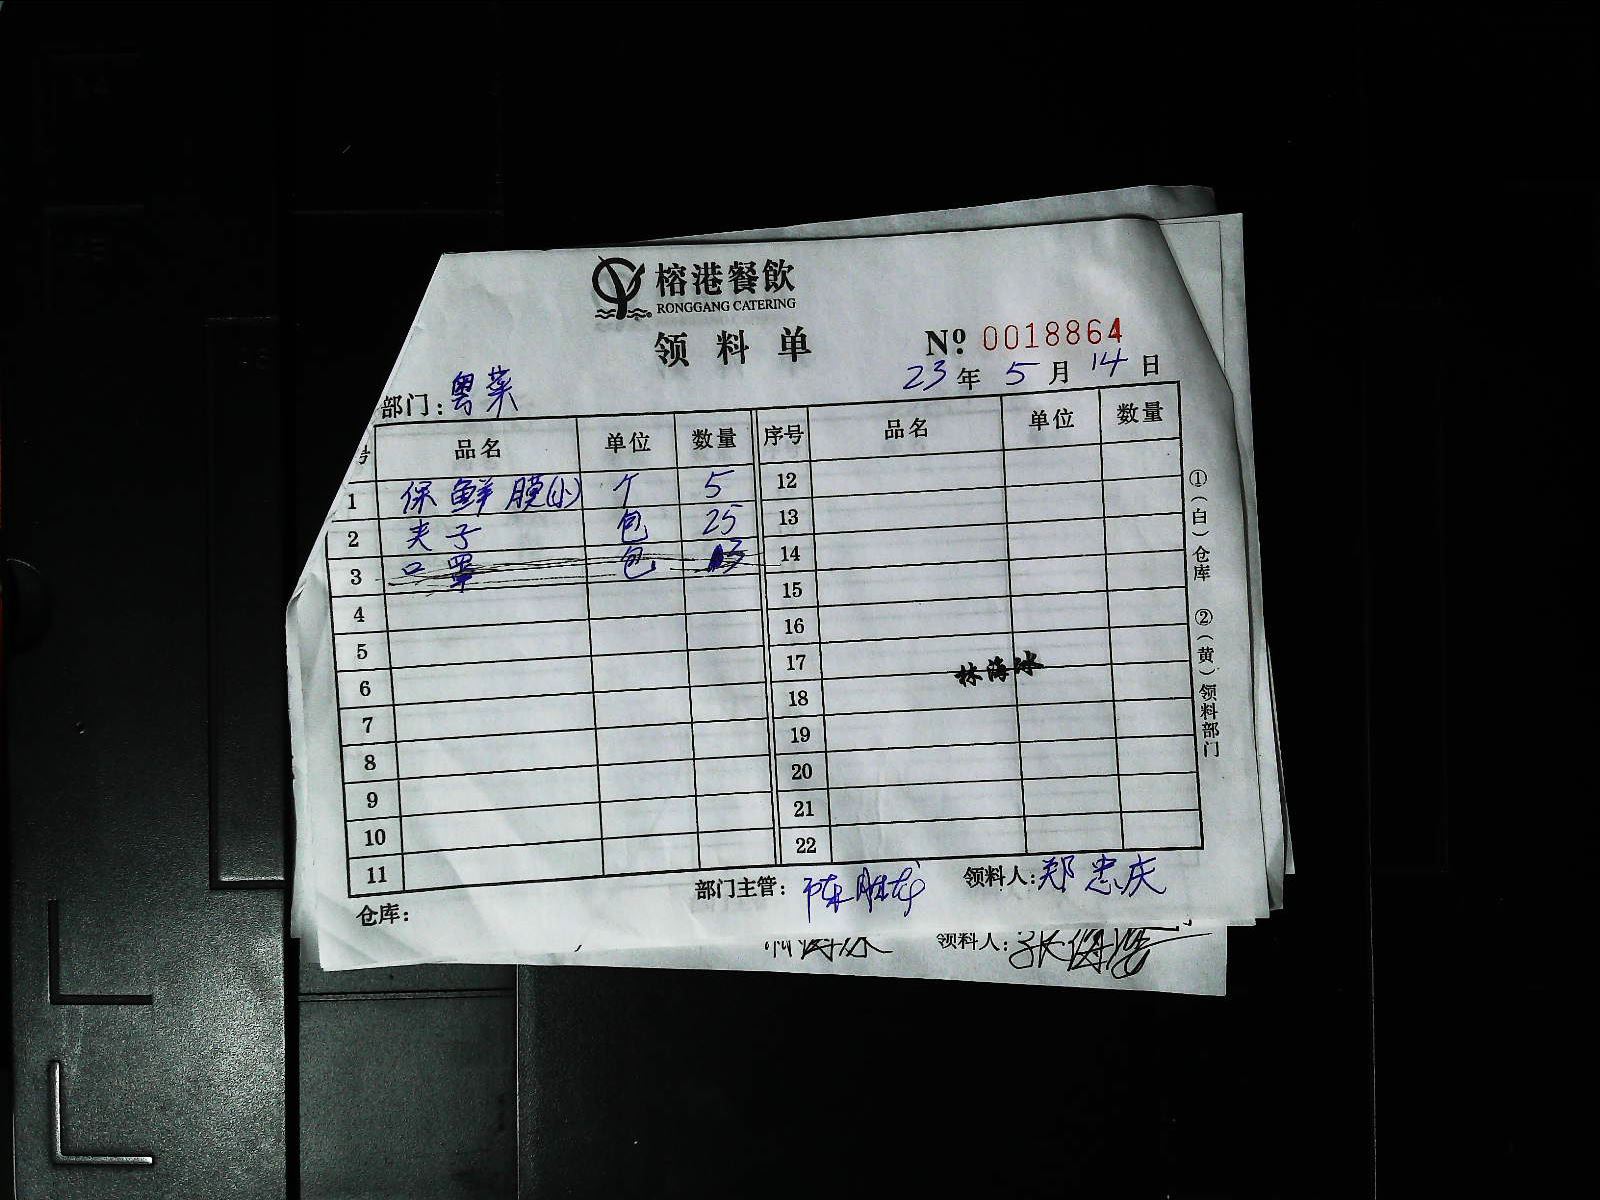 榕港餐飲
RONGGANG CATERING
领料单
№ 0018864
23年5月14日
部门:粤菜
号 品名 单位 数量 序号 品名 单位 数量
1 保鲜膜(小) 个 5 12
2 夹子 包 25 13
3 口罩 包 14
4 15
5 16
6 17
林海冰
7 18
8 19
9 20
10 21
11 22
①(白)仓库 ②(黄)领料部门
仓库: 部门主管: 领料人:郑忠庆
领料人:张海